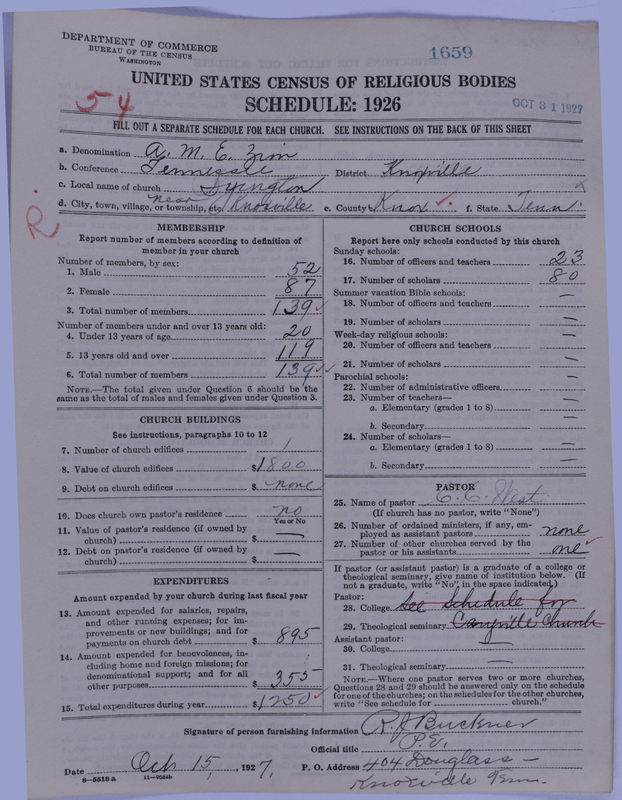 DEPARTMENT OF COMMERCE
BUREAU OF THE CENSUS
WASHINGTON
1659
UNITED STATES CENSUS OF RELIGIOUS BODIES
SCHEDULE: 1926
OCT 31 1927
54
FILL OUT A SEPARATE SCHEDULE FOR EACH CHURCH. SEE INSTRUCTIONS ON THE BACK OF THIS SHEET
a. Denomination A. M. E. Zion
b. Conference Tennessee District Knoxville
c. Local name of church
d. City, town, village, or township, etc. near Knoxville e. County Knox f. State Tenn.
R.
MEMBERSHIP
Report number of members according to definition of
member in your church
Number of members, by sex:
1. Male 52
2. Female 87
3. Total number of members 139
Number of members under and over 13 years old:
4. Under 13 years of age 20
5. 13 years old and over 119
6. Total number of members 139
NOTE.—The total given under Question 6 should be the
same as the total of males and females given under Question 3.
CHURCH BUILDINGS
See instructions, paragraphs 10 to 12
7. Number of church edifices 1
8. Value of church edifices $1800
9. Debt on church edifices $ none
10. Does church own pastor's residence? no
Yes or No
11. Value of pastor's residence (if owned by
church) $ —
12. Debt on pastor's residence (if owned by
church) $ —
EXPENDITURES
Amount expended by your church during last fiscal year
13. Amount expended for salaries, repairs,
and other running expenses; for im-
provements or new buildings; and for
payments on church debt $ 895
14. Amount expended for benevolences, in-
cluding home and foreign missions; for
denominational support; and for all
other purposes $ 355
15. Total expenditures during year $1250
CHURCH SCHOOLS
Report here only schools conducted by this church
Sunday schools:
16. Number of officers and teachers 23
17. Number of scholars 80
Summer vacation Bible schools:
18. Number of officers and teachers —
19. Number of scholars —
Week-day religious schools:
20. Number of officers and teachers —
21. Number of scholars —
Parochial schools:
22. Number of administrative officers —
23. Number of teachers—
a. Elementary (grades 1 to 8) —
b. Secondary —
24. Number of scholars—
a. Elementary (grades 1 to 8) —
b. Secondary —
PASTOR
25. Name of pastor C. C. West
(If church has no pastor, write "None")
26. Number of ordained ministers, if any, em-
ployed as assistant pastors none
27. Number of other churches served by the
pastor or his assistants one
If pastor (or assistant pastor) is a graduate of a college or
theological seminary, give name of institution below. (If
not a graduate, write "No", in the space indicated.)
Pastor:
28. College See Schedule for
29. Theological seminary Caryville Church
Assistant pastor:
30. College —
31. Theological seminary —
NOTE.—Where one pastor serves two or more churches,
Questions 28 and 29 should be answered only on the schedule
for one of the churches; on the schedules for the other churches,
write "See schedule for church."
Signature of person furnishing information R. J. Buckner
Official title P. E.
Date Oct 15, 1927, P. O. Address 404 Douglass —
8—5518 a 11—9034b Knoxville Tenn.